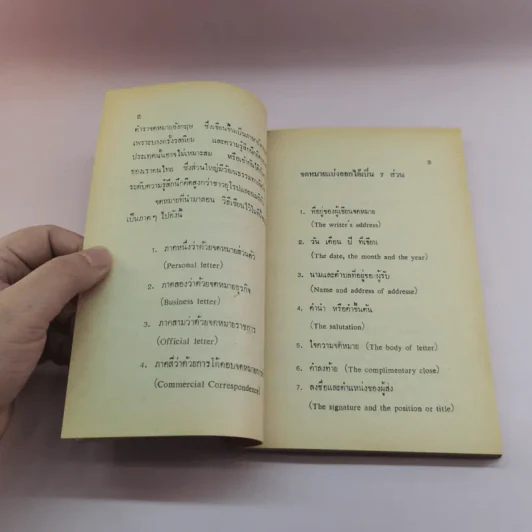 ๘
ตำราจดหมายอังกฤษ ซึ่งเขียนขึ้นเป็นภาษา
เพราะบางครั้งรสนิยม และความรู้สึกนึก
ประเทศนั้นอาจไม่เหมาะสม หรือเข้ากันได้
ของเราคนไทย ซึ่งส่วนใหญ่มีวัฒนธรรม
ระดับความรู้สึกนึกคิดสูงกว่าชาวยุโรปและ
จดหมายที่นำมาสอน วิธีเขียนไว้ใน
เป็นภาค ๆ ไปดังนี้
1. ภาคหนึ่งว่าด้วยจดหมายส่วนตัว
(Personal letter)
2. ภาคสองว่าด้วยจดหมายธุรกิจ
(Business letter)
3. ภาคสามว่าด้วยจดหมายราชการ
(Official letter)
4. ภาคสี่ว่าด้วยการโต้ตอบจดหมายทาง
(Commercial Correspondence)
๙
จดหมายแบ่งออกได้เป็น 7 ส่วน
1. ที่อยู่ของผู้เขียนจดหมาย
(The writer's address)
2. วัน เดือน ปี ที่เขียน
(The date, the month and the year)
3. นามและตำบลที่อยู่ของผู้รับ
(Name and address of addresse)
4. คำนำ หรือคำขึ้นต้น
(The salutation)
5. ใจความจดหมาย (The body of letter)
6. คำลงท้าย (The complimentary close)
7. ลงชื่อและตำแหน่งของผู้ส่ง
(The signature and the position or title)